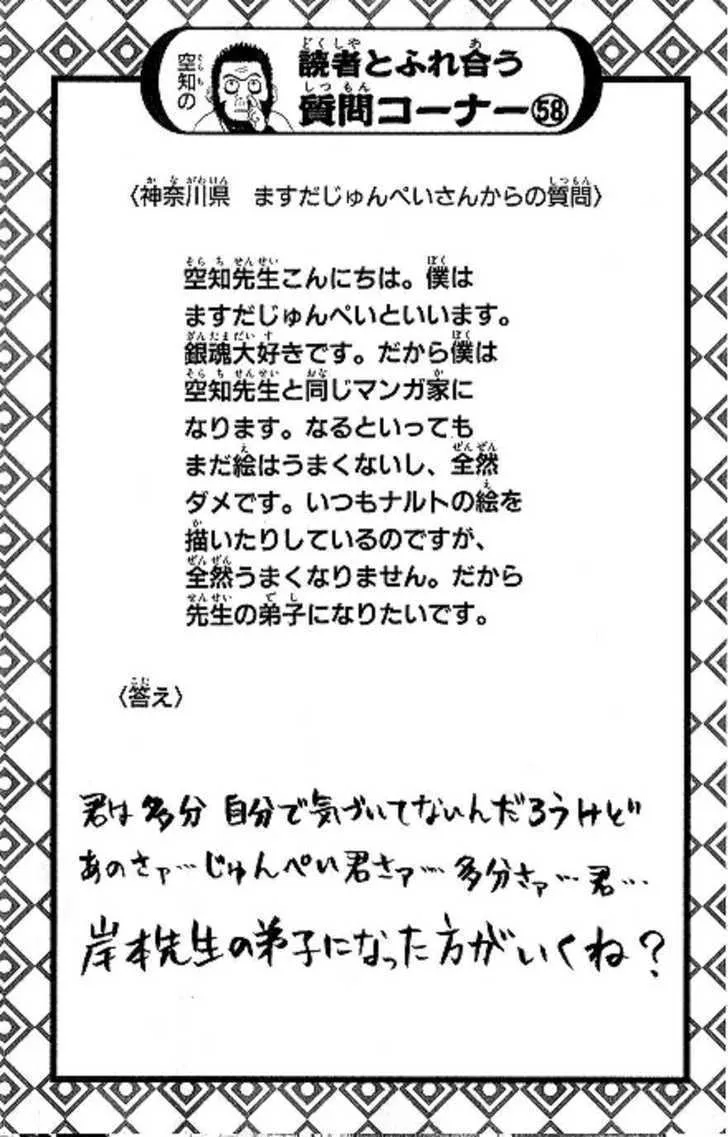 空知の
読者とふれ合う
質問コーナー58
〈神奈川県 ますだじゅんぺいさんからの質問〉
空知先生こんにちは。僕は
ますだじゅんぺいといいます。
銀魂大好きです。だから僕は
空知先生と同じマンガ家に
なります。なるといっても
まだ絵はうまくないし、全然
ダメです。いつもナルトの絵を
描いたりしているのですが、
全然うまくなりません。だから
先生の弟子になりたいです。
〈答え〉
君は多分 自分で気づいてないんだろうけど
あのさァ…じゅんぺい君さァ… 多分さァ…君…
岸本先生の弟子になった方がいくね?